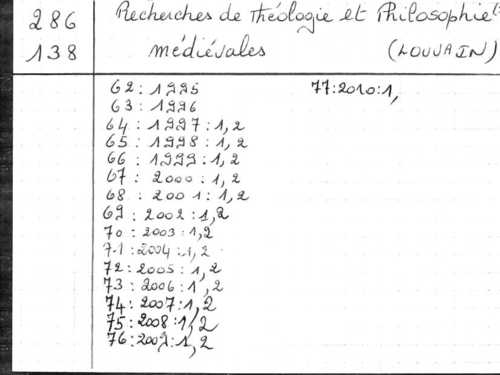 286
138
Recherches de Théologie et Philosophie
médiévales (LOUVAIN)
62: 1995
63: 1996
64: 1997: 1, 2
65: 1998: 1, 2
66: 1999: 1, 2
67: 2000: 1, 2
68: 2001: 1, 2
69: 2002: 1, 2
70: 2003: 1, 2
71: 2004: 1, 2
72: 2005: 1, 2
73: 2006: 1, 2
74: 2007: 1, 2
75: 2008: 1, 2
76: 2009: 1, 2
77: 2010: 1,